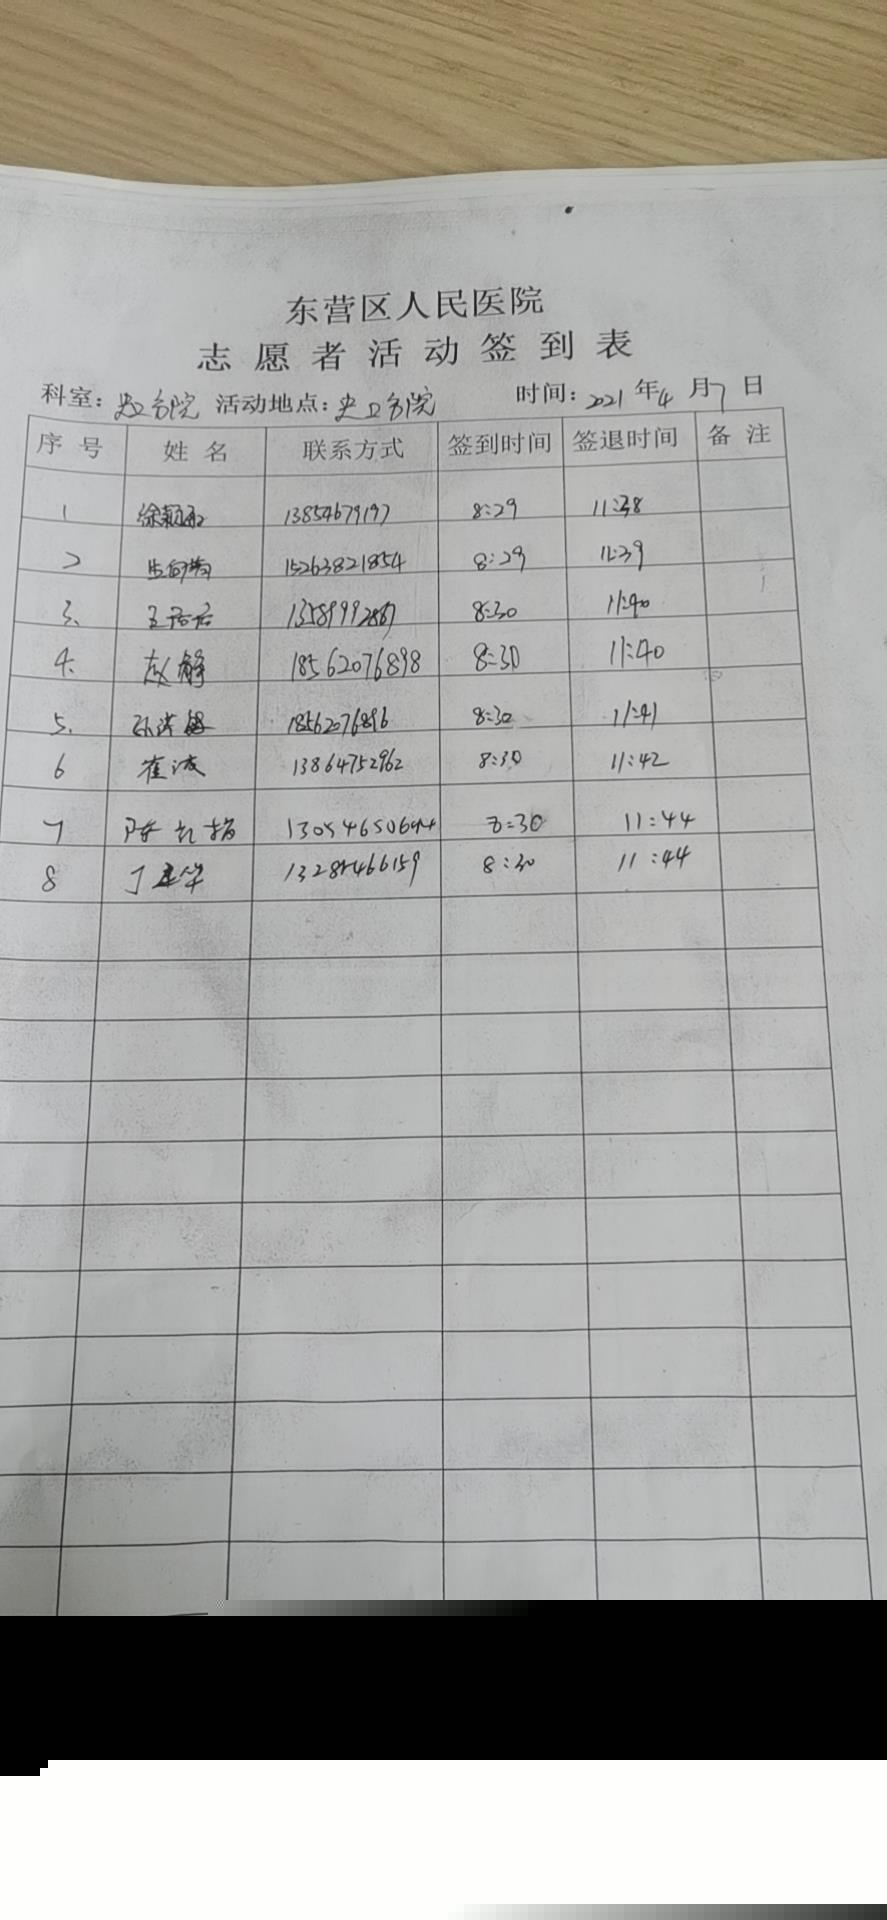 东营区人民医院
志愿者活动签到表
科室：史口分院 活动地点：史口分院 时间：2021年4月7日
序号 姓名 联系方式 签到时间 签退时间 备注
1 13854679197 8:29 11:38
2 15263821854 8:29 11:39
3. 8:30 11:40
4. 赵静 18562076898 8:30 11:40
5. 18562076896 8:30 11:41
6 崔波 13864752962 8:30 11:42
7 8:30 11:44
8 8:30 11:44